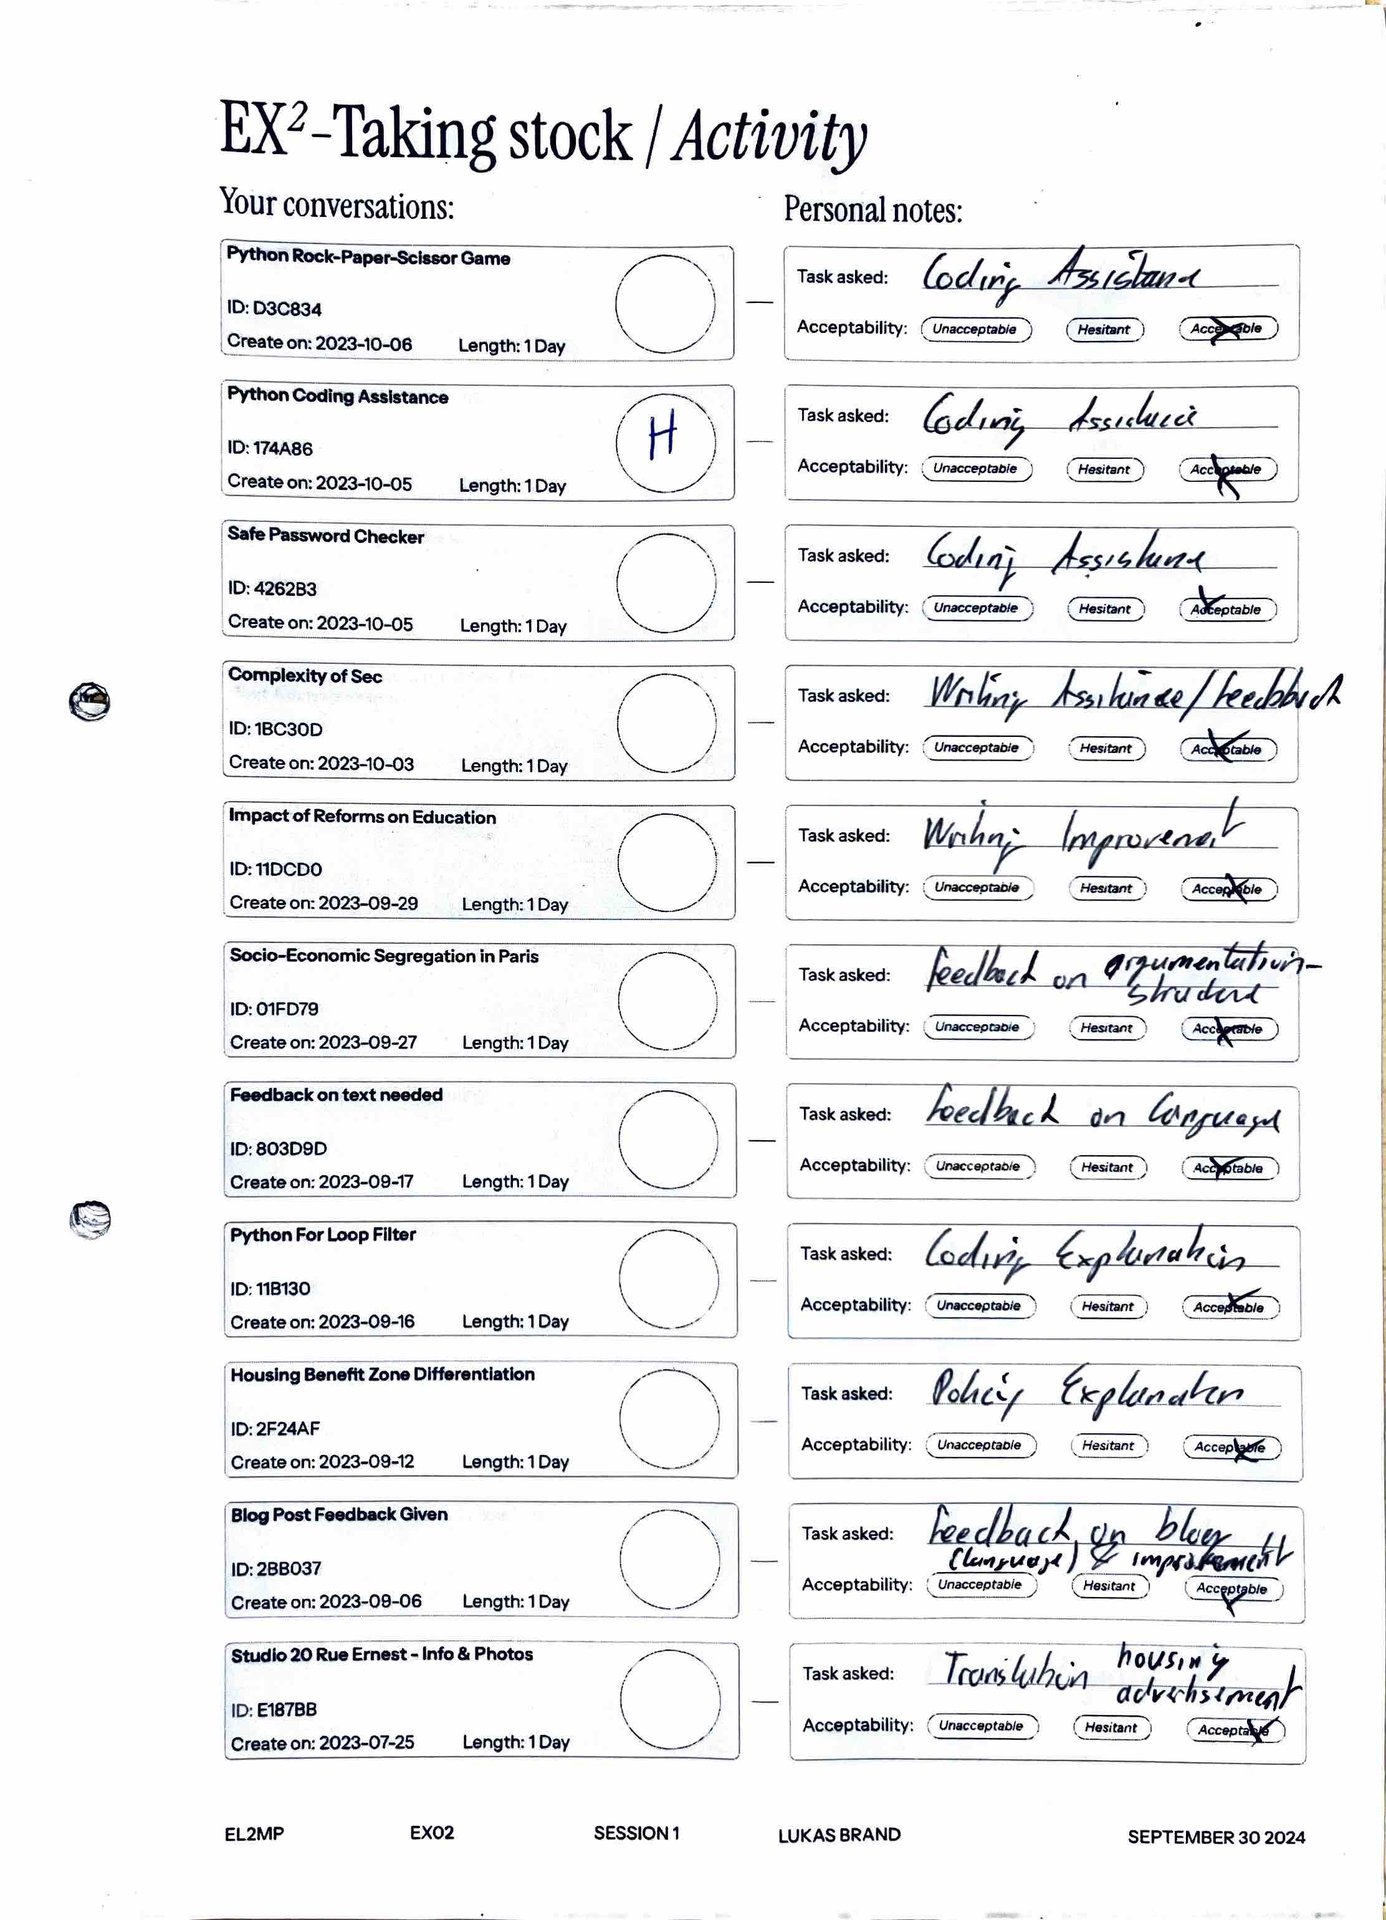 EX²-Taking stock / Activity
Your conversations:
Personal notes:
Python Rock-Paper-Scissor Game
ID: D3C834
Create on: 2023-10-06 Length: 1 Day
Task asked: Coding Assistance
Acceptability: Unacceptable Hesitant Acceptable
Python Coding Assistance
ID: 174A86
Create on: 2023-10-05 Length: 1 Day
H
Task asked: Coding Assistance
Acceptability: Unacceptable Hesitant Acceptable
Safe Password Checker
ID: 4262B3
Create on: 2023-10-05 Length: 1 Day
Task asked: Coding Assistance
Acceptability: Unacceptable Hesitant Acceptable
Complexity of Sec
ID: 1BC30D
Create on: 2023-10-03 Length: 1 Day
Task asked: Writing Assistance/Feedback
Acceptability: Unacceptable Hesitant Acceptable
Impact of Reforms on Education
ID: 11DCD0
Create on: 2023-09-29 Length: 1 Day
Task asked: Writing Improvement
Acceptability: Unacceptable Hesitant Acceptable
Socio-Economic Segregation in Paris
ID: 01FD79
Create on: 2023-09-27 Length: 1 Day
Task asked: Feedback on argumentation-
Acceptability: Unacceptable Hesitant Acceptable
Feedback on text needed
ID: 803D9D
Create on: 2023-09-17 Length: 1 Day
Task asked: Feedback on language
Acceptability: Unacceptable Hesitant Acceptable
Python For Loop Filter
ID: 11B130
Create on: 2023-09-16 Length: 1 Day
Task asked: Coding Explanation
Acceptability: Unacceptable Hesitant Acceptable
Housing Benefit Zone Differentiation
ID: 2F24AF
Create on: 2023-09-12 Length: 1 Day
Task asked: Policy Explanation
Acceptability: Unacceptable Hesitant Acceptable
Blog Post Feedback Given
ID: 2BB037
Create on: 2023-09-06 Length: 1 Day
Task asked: Feedback on blog
(language) & improvement
Acceptability: Unacceptable Hesitant Acceptable
Studio 20 Rue Ernest - Info & Photos
ID: E187BB
Create on: 2023-07-25 Length: 1 Day
Task asked: Translation housing
advertisement
Acceptability: Unacceptable Hesitant Acceptable
EL2MP EX02 SESSION 1 LUKAS BRAND SEPTEMBER 30 2024